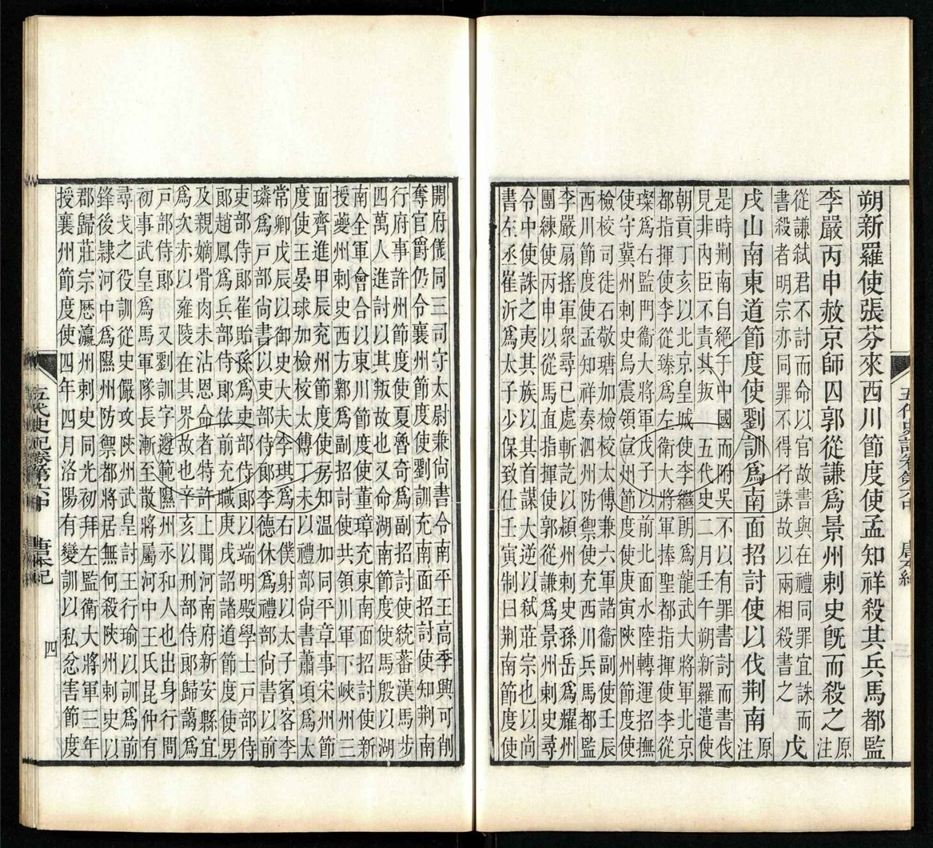 朔新羅使張芬來西川節度使孟知祥殺其兵馬都監
李嚴丙申赦京師囚郭從謙爲景州刺史旣而殺之原注
從謙弒君不討而命以官故書與在禮同罪宜誅而
書殺者明宗亦同罪不得行誅故以兩相殺書之
戊
戌山南東道節度使劉訓爲南面招討使以伐荊南原注
是時荊南自絕于中國而附吳不以有罪書討而書伐
見非內臣不責其叛　五代史二月壬午朔新羅遣使
朝貢丁亥以北京皇城使李繼朗爲龍武大將軍北京
都指揮使李從臻爲左衛大將軍捧聖都指揮使李從
璨爲右監門衛大將軍戊子以前北面水陸轉運招撫
使守冀州刺史烏震領宣州節度使庚寅陝州節度使
檢校司徒石敬瑭加檢校太傅兼六軍諸衛副使壬辰
西川節度使孟知祥奏泗州防禦使充西川兵馬都監
李嚴扇搖軍衆尋已處斬訖以潁州刺史孫岳爲耀州
團練使丙申以從馬直指揮使郭從謙爲景州刺史尋
令中使誅之夷其族以其首謀大逆以弒莊宗也以尚
書左丞崔沂爲太子少保致仕壬寅制曰荊南節度使
開府儀同三司守太尉兼尚書令南平王高季興可削
奪官爵仍令襄州節度使劉訓充南面招討使知荊南
行府事許州節度使夏魯奇爲副招討使統蕃漢馬步
四萬人進討以其叛故也又命湖南節度使馬殷以湖
南全軍會合以東川節度使董璋充東南面招討使新
授夔州刺史西方鄴爲副招討使共領川軍下峽州三
面齊進甲辰兗州節度使房知溫加同平章事宋州節
度使王晏球加檢校太傅丁未以禮部尚書蕭頃爲太
常卿戊辰以御史大夫李琪爲右僕射以太子賓客李
璘爲戸部尚書以吏部侍郎李德休爲禮部尚書以前
吏部侍郎崔貽孫爲吏部侍郎以端明殿學士戸部侍
郎趙鳳爲兵部侍郎依前充職庚戌詔諸道節度使男
及親嫡骨肉未沾恩命者特許上聞河南府新安縣宜
爲次赤以雍陵在其界故也辛亥以刑部侍郎歸藹爲
戸部侍郎　又劉訓字遵範隰州永和人也出身行間
初事武皇爲馬軍隊長漸至散將屬河中王氏昆仲有
尋戈之役訓從史儼攻陝州武皇討王行瑜以訓爲前
鋒後隸河中爲隰州防禦都將居無何殺陝州刺史以
郡歸莊宗歷瀛州刺史同光初拜左監衛大將軍三年
授襄州節度使四年四月洛陽有變訓以私忿害節度
五代史記卷第六中　唐本紀　四